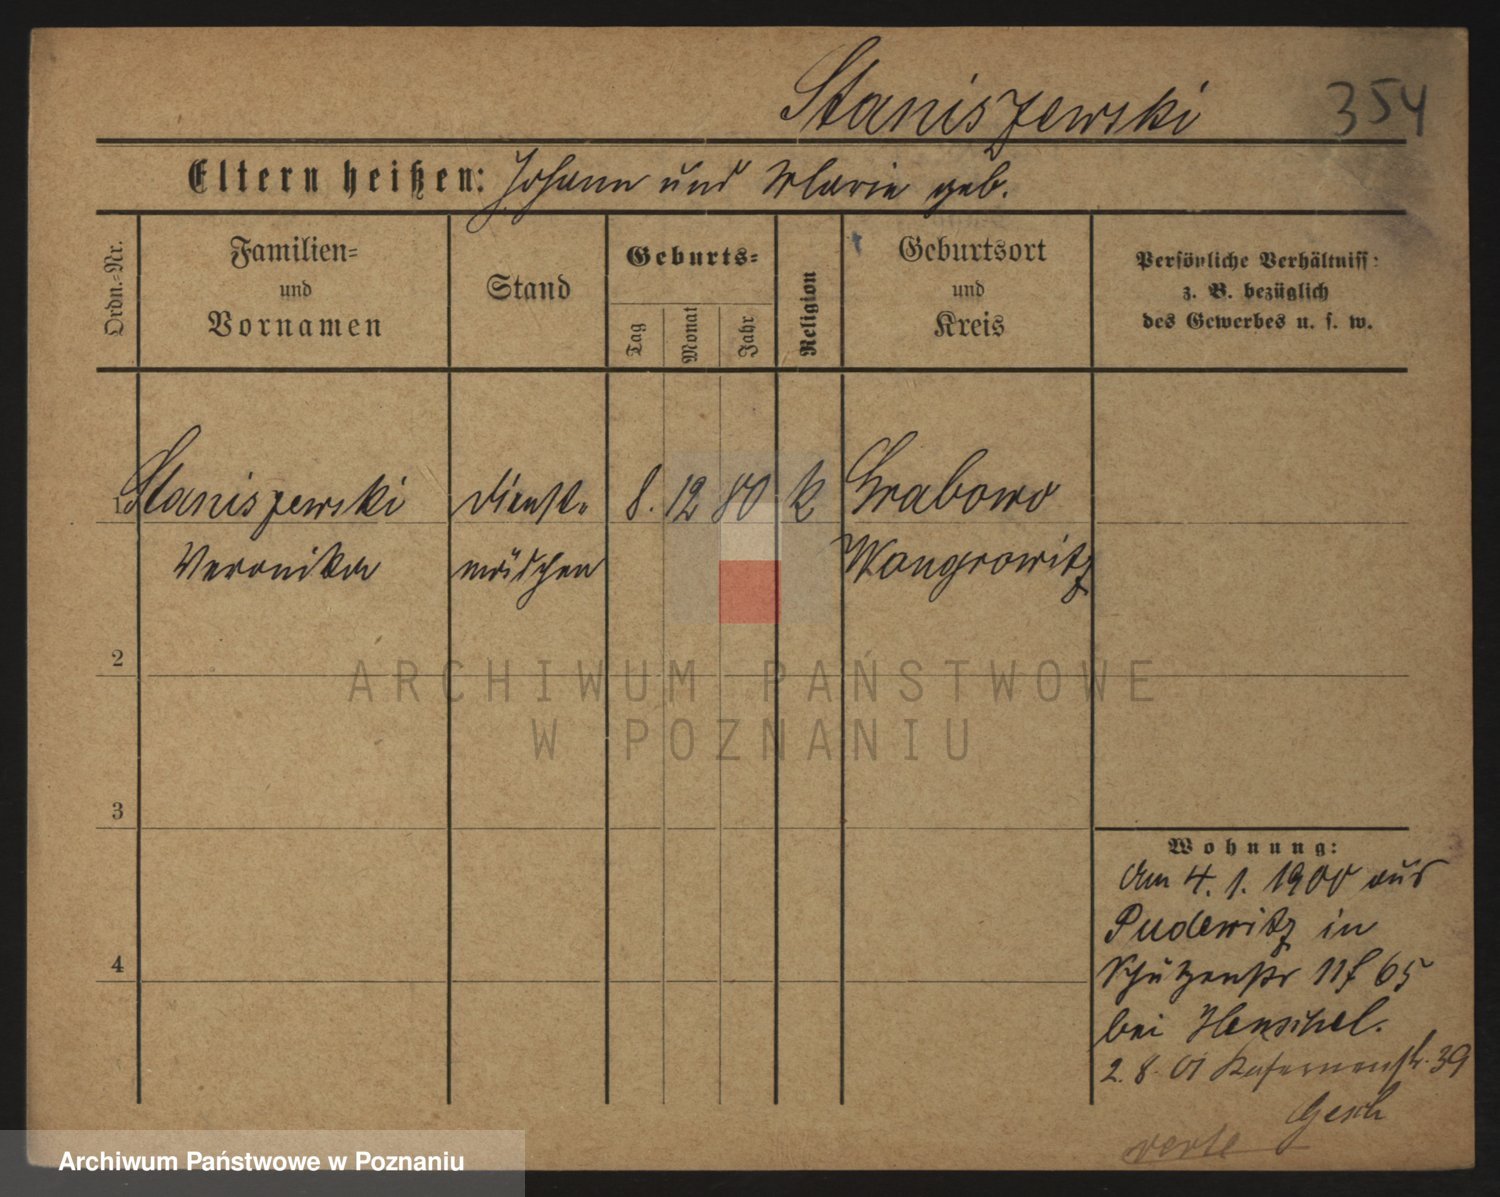 Staniszewski
354
Eltern heißen: Johann und Marie geb.
Ordn.-Nr.
Familien-
und
Vornamen
Stand
Geburts-
Tag
Monat
Jahr
Religion
Geburtsort
und
Kreis
Persönliche Verhältniss:
z. B. bezüglich
des Gewerbes u. s. w.
1 Staniszewski Dienst- 8. 12 80 k Grabowo
Veronika mädchen Wongrowitz
2
3
4
Wohnung:
Am 4. 1. 1900 aus
Pudewitz in
Schützenstr 65
bei Henschel.
2. 8. 01 Kasernenstr. 39
verte
ARCHIWUM PAŃSTWOWE
W POZNANIU
Archiwum Państwowe w Poznaniu